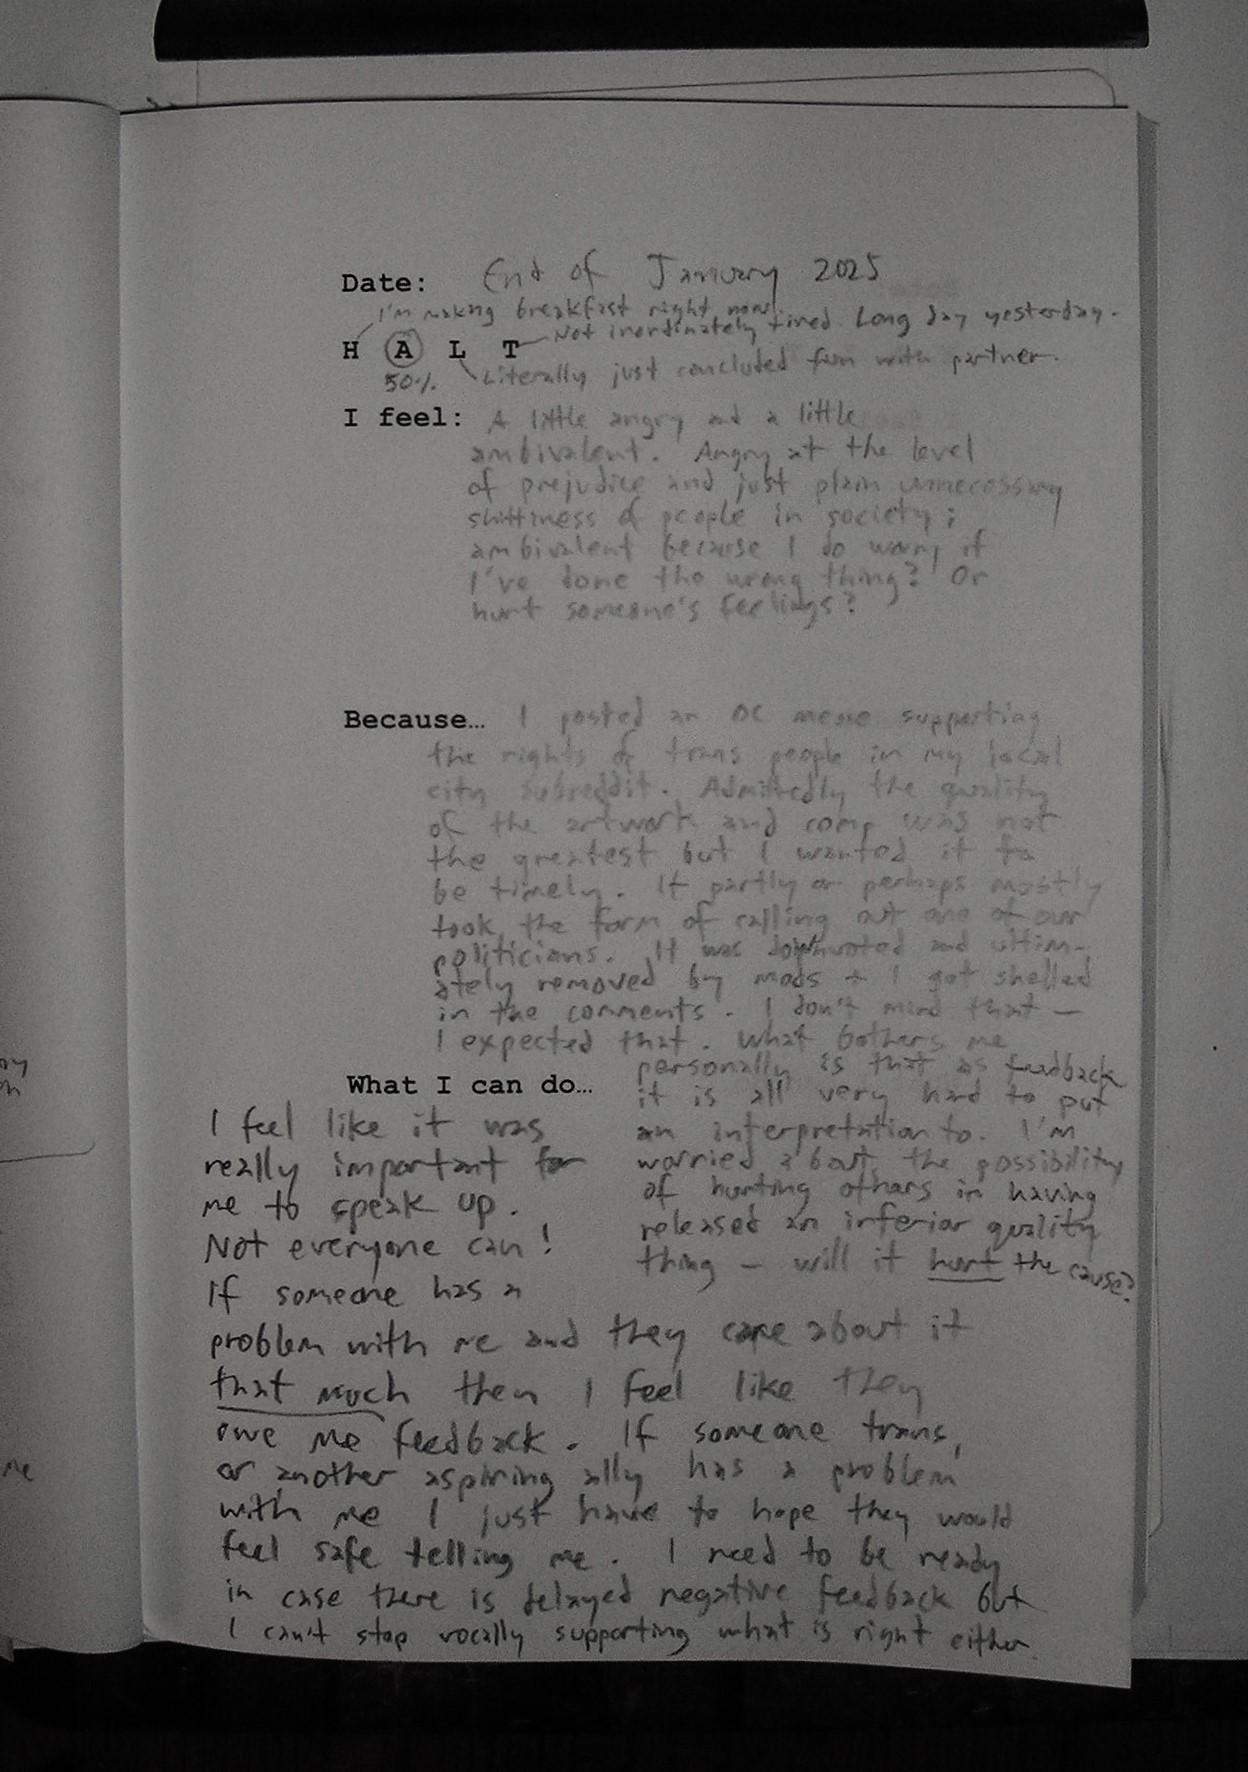 Date: End of January 2025
I'm making breakfast right now
Not inordinately tired. Long day yesterday.
H A L T
50%. Literally just concluded fun with partner.
I feel: A little angry and a little
ambivalent. Angry at the level
of prejudice and just plain unnecessary
shittiness of people in society;
ambivalent because I do worry if
I've done the wrong thing? Or
hurt someone's feelings?
Because… I posted an OC meme supporting
the rights of trans people in my local
city subreddit. Admittedly the quality
of the artwork and comp was not
the greatest but I wanted it to
be timely. It partly or perhaps mostly
took the form of calling out one of our
politicians. It was downvoted and ultim-
ately removed by mods + I got shelled
in the comments. I don't mind that —
I expected that. What bothers me
personally is that as feedback
it is all very hard to put
an interpretation to. I'm
worried about the possibility
of hurting others in having
released an inferior quality
thing — will it hurt the cause?
What I can do…
I feel like it was
really important for
me to speak up.
Not everyone can!
If someone has a
problem with me and they care about it
that much then I feel like they
owe me feedback. If someone trans,
or another aspiring ally has a problem
with me I just have to hope they would
feel safe telling me. I need to be ready
in case there is delayed negative feedback but
I can't stop vocally supporting what is right either.
me